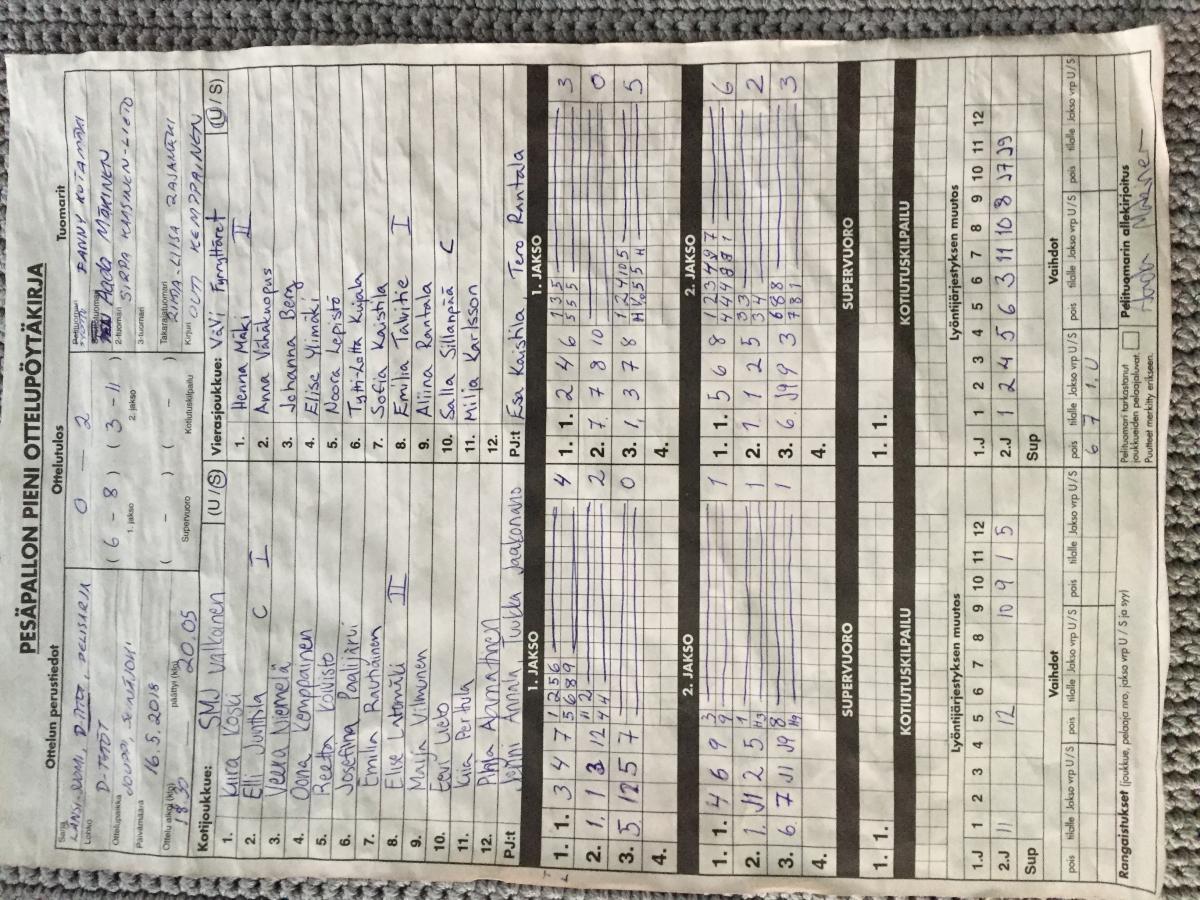 PESÄPALLON PIENI OTTELUPÖYTÄKIRJA
Ottelun perustiedot
Ottelutulos
Tuomarit
Sarja
LÄNSI-SUOMI, D-TYTÖT, PELISARJA
Lohko
D-TYTÖT
Ottelupaikka
JOUPPI, SEINÄJOKI
Päivämäärä
16.5.2018
Ottelu alkoi (klo)
päättyi (klo)
20.05
0 – 2
( 6 – 8 ) ( 3 – 11 )
1. jakso
2. jakso
( – ) ( – )
Supervuoro
Kotiutuskilpailu
Pelituomari
MÄKINEN
2-tuomari
SIRPA KAASINEN-LIETO
3-tuomari
Takarajatuomari
RITVA-LIISA RAJAMÄKI
Kirjuri
OUTI KEMPPAINEN
Kotijoukkue: SMJ Valkoinen (U/S)
1. Kiira Koski
2. Elli Junttila C I
3. Veera Niemelä
4. Oona Kemppainen
5. Reetta Koivisto
6. Josefina Paalijärvi
7. Emilia Rautiainen
8. Else Latomäki II
9. Maria Vilmunen
10. Eevi Lieto
11. Kiia Perttula
12. Pihja
PJ:t Jenni Annala, Jukka Jaakonaho
Vierasjoukkue: VäVi Fyrryttäret (U/S)
1. Henna Mäki II
2. Anna Vähäkuopus
3. Johanna Berg
4. Elise Ylimäki
5. Noora Lepistö
6. Tytti-Lotta Kujala
7. Sofia Kaistila
8. Emilia Talvitie I
9. Aliina Rantala
10. Salla Sillanpää C
11. Milja Karlsson
12.
PJ:t Esa Kaistila, Tero Rantala
1. JAKSO
1. 1. 3 4 7 1 2 5 6 4
5 6 8 9
2. 1. 1 3 12 2
4 4
3. 5 12 5 7 0
4.
1. JAKSO
1. 1. 2 4 6 1 3 5 3
5 5 5
2. 7. 7 8 10 0
3. 1. 3 7 8 1 2 4 10 5 5
4.
2. JAKSO
1. 1. 4 6 9 3 1
9
2. 1. J11 2 5 1 1
3. 6 7 J11 J9 8 1
4.
2. JAKSO
1. 1. 5 6 8 1 2 3 4 9 7 6
4 4 4 8 8 1
2. 1. 1 2 5 3 3 2
3 4
3. 6. J19 9 3 6 8 8 3
7 8 1
4.
SUPERVUORO
1. 1.
SUPERVUORO
1. 1.
KOTIUTUSKILPAILU
KOTIUTUSKILPAILU
Lyöntijärjestyksen muutos
1.J 1 2 3 4 5 6 7 8 9 10 11 12
2.J 11 12 10 9 1 5
Sup
Lyöntijärjestyksen muutos
1.J 1 2 3 4 5 6 7 8 9 10 11 12
2.J 1 2 4 5 6 3 11 10 8 J7 J9
Sup
Vaihdot
pois tilalle Jakso vrp U/S pois tilalle Jakso vrp U/S pois tilalle Jakso vrp U/S
Vaihdot
pois tilalle Jakso vrp U/S pois tilalle Jakso vrp U/S pois tilalle Jakso vrp U/S
6 7 1. U
Rangaistukset (joukkue, pelaaja nro, jakso vrp U / S ja syy)
Pelituomari tarkastanut
joukkueiden pelaajaluvat.
Puutteet merkitty erikseen.
Pelituomarin allekirjoitus